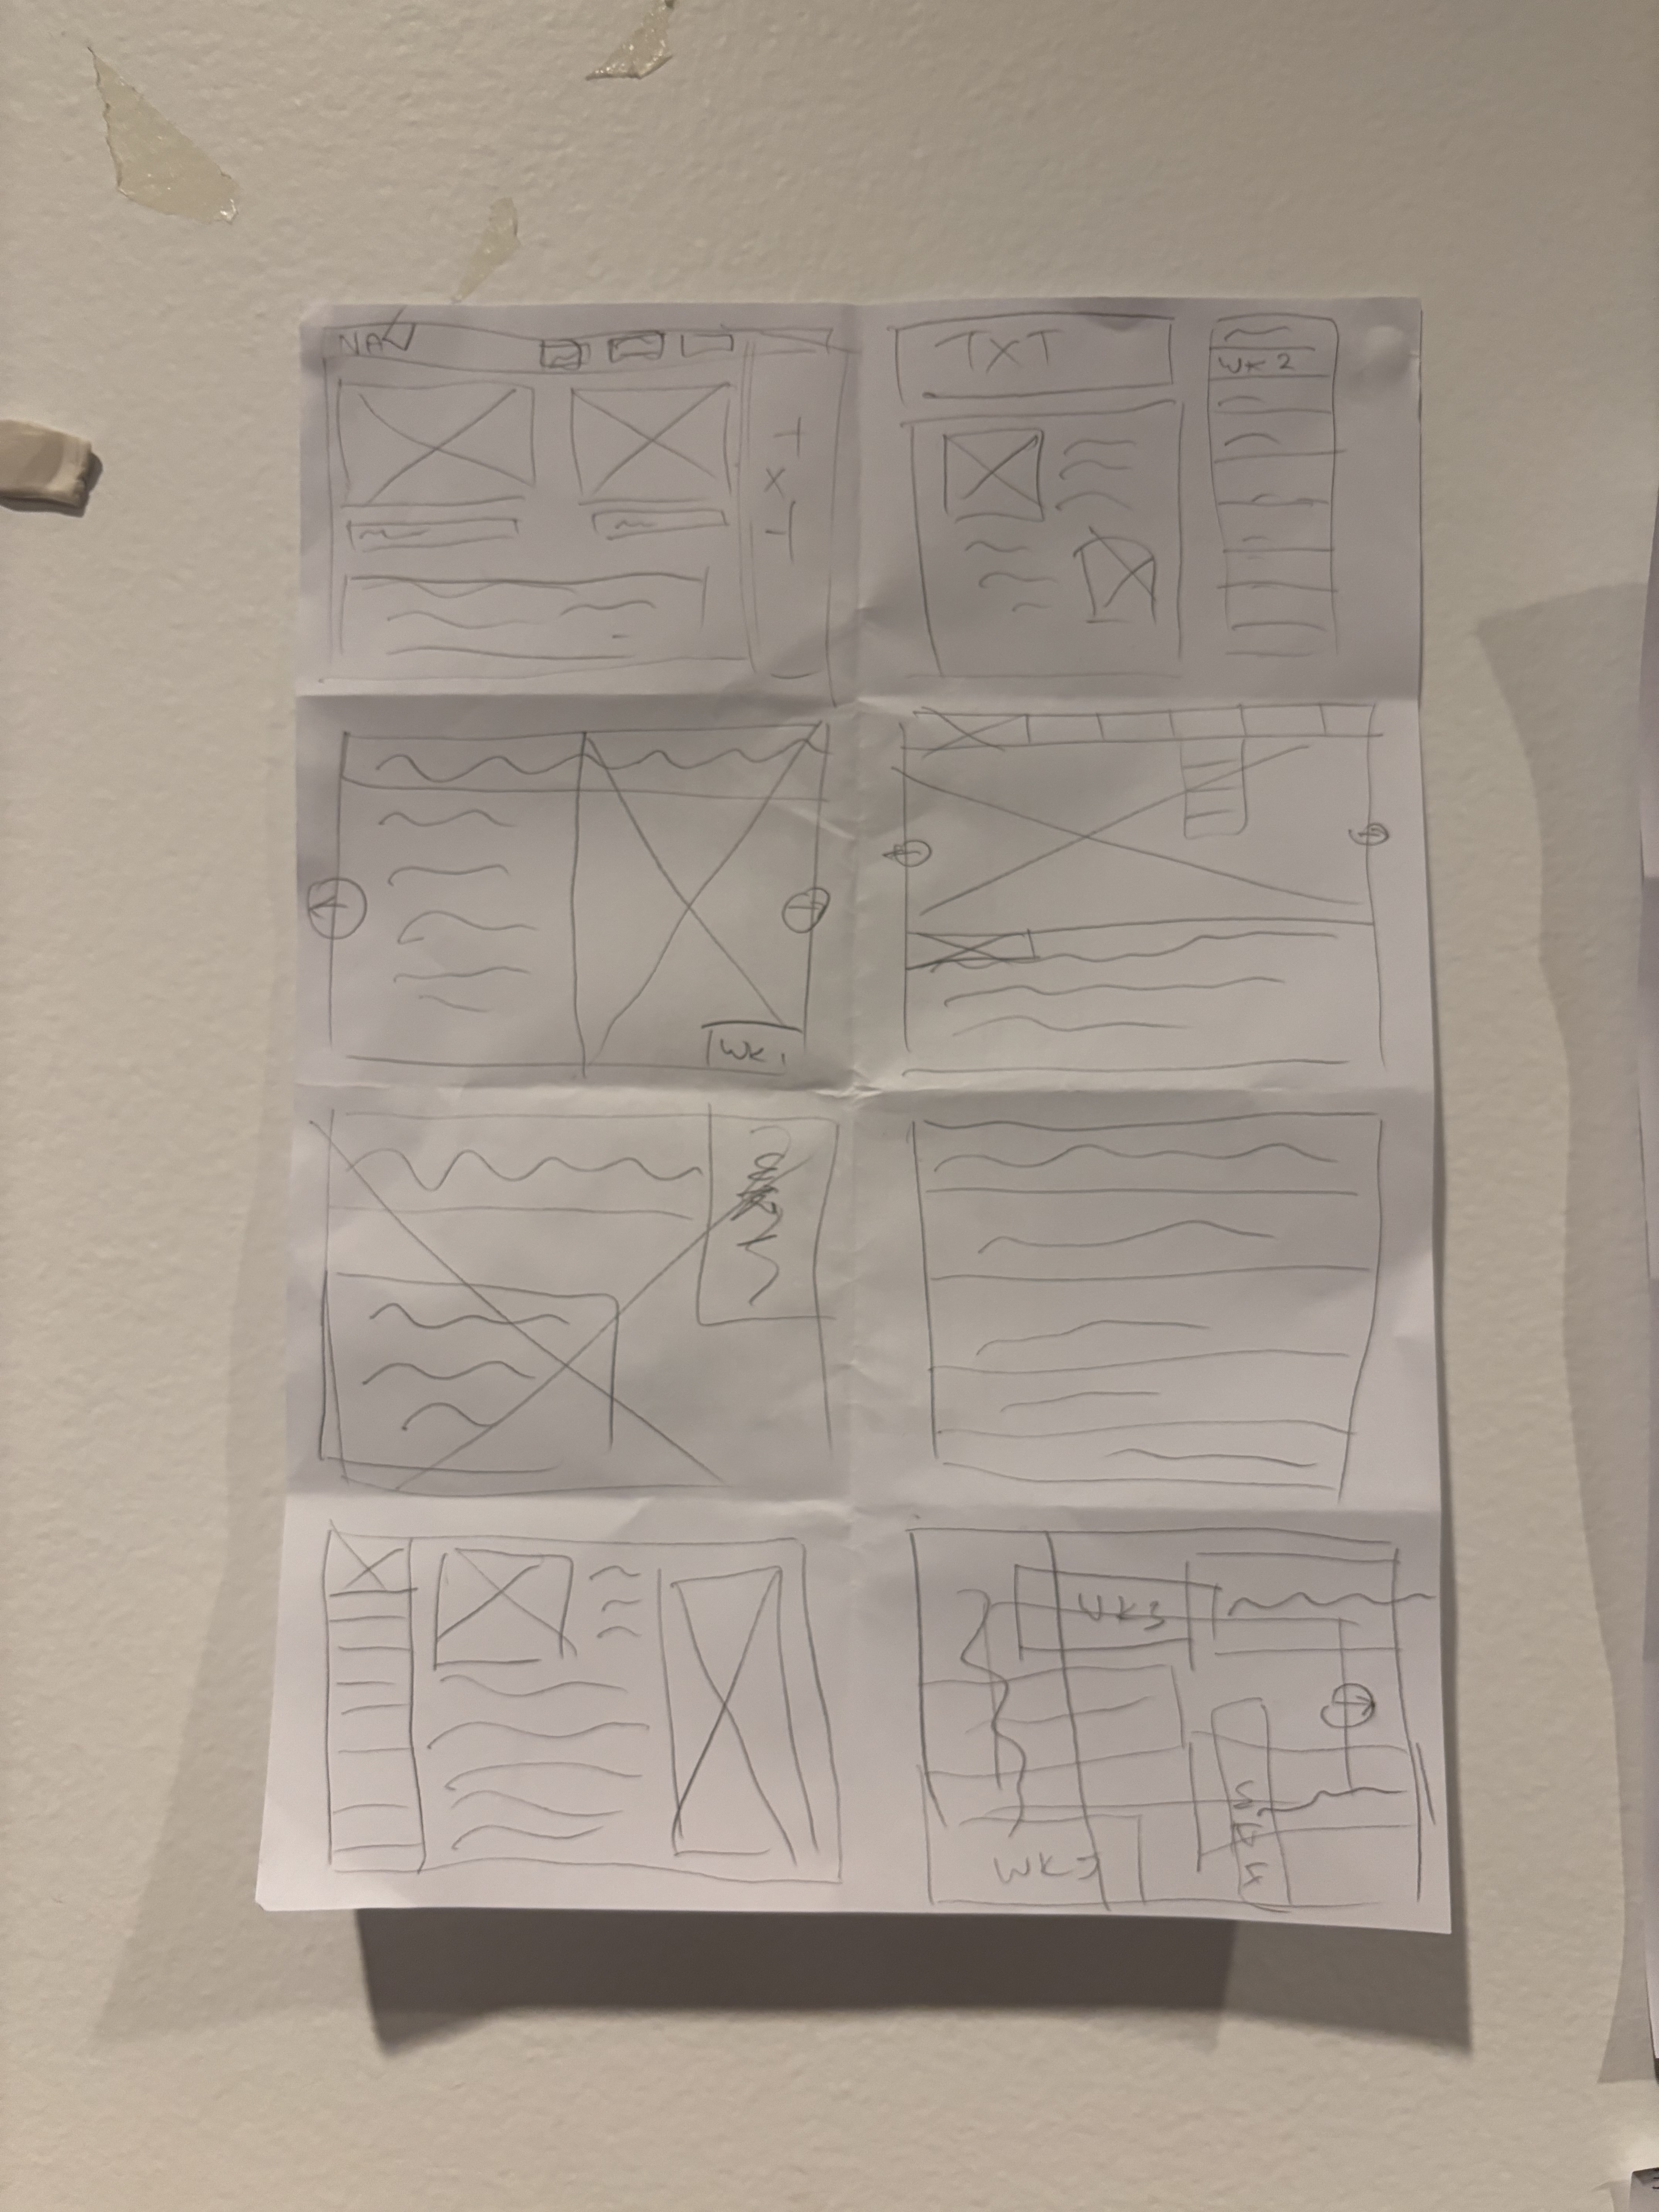 NAV
TXT
TXT
WK 2
WK 1
WK3
WK4
WK3